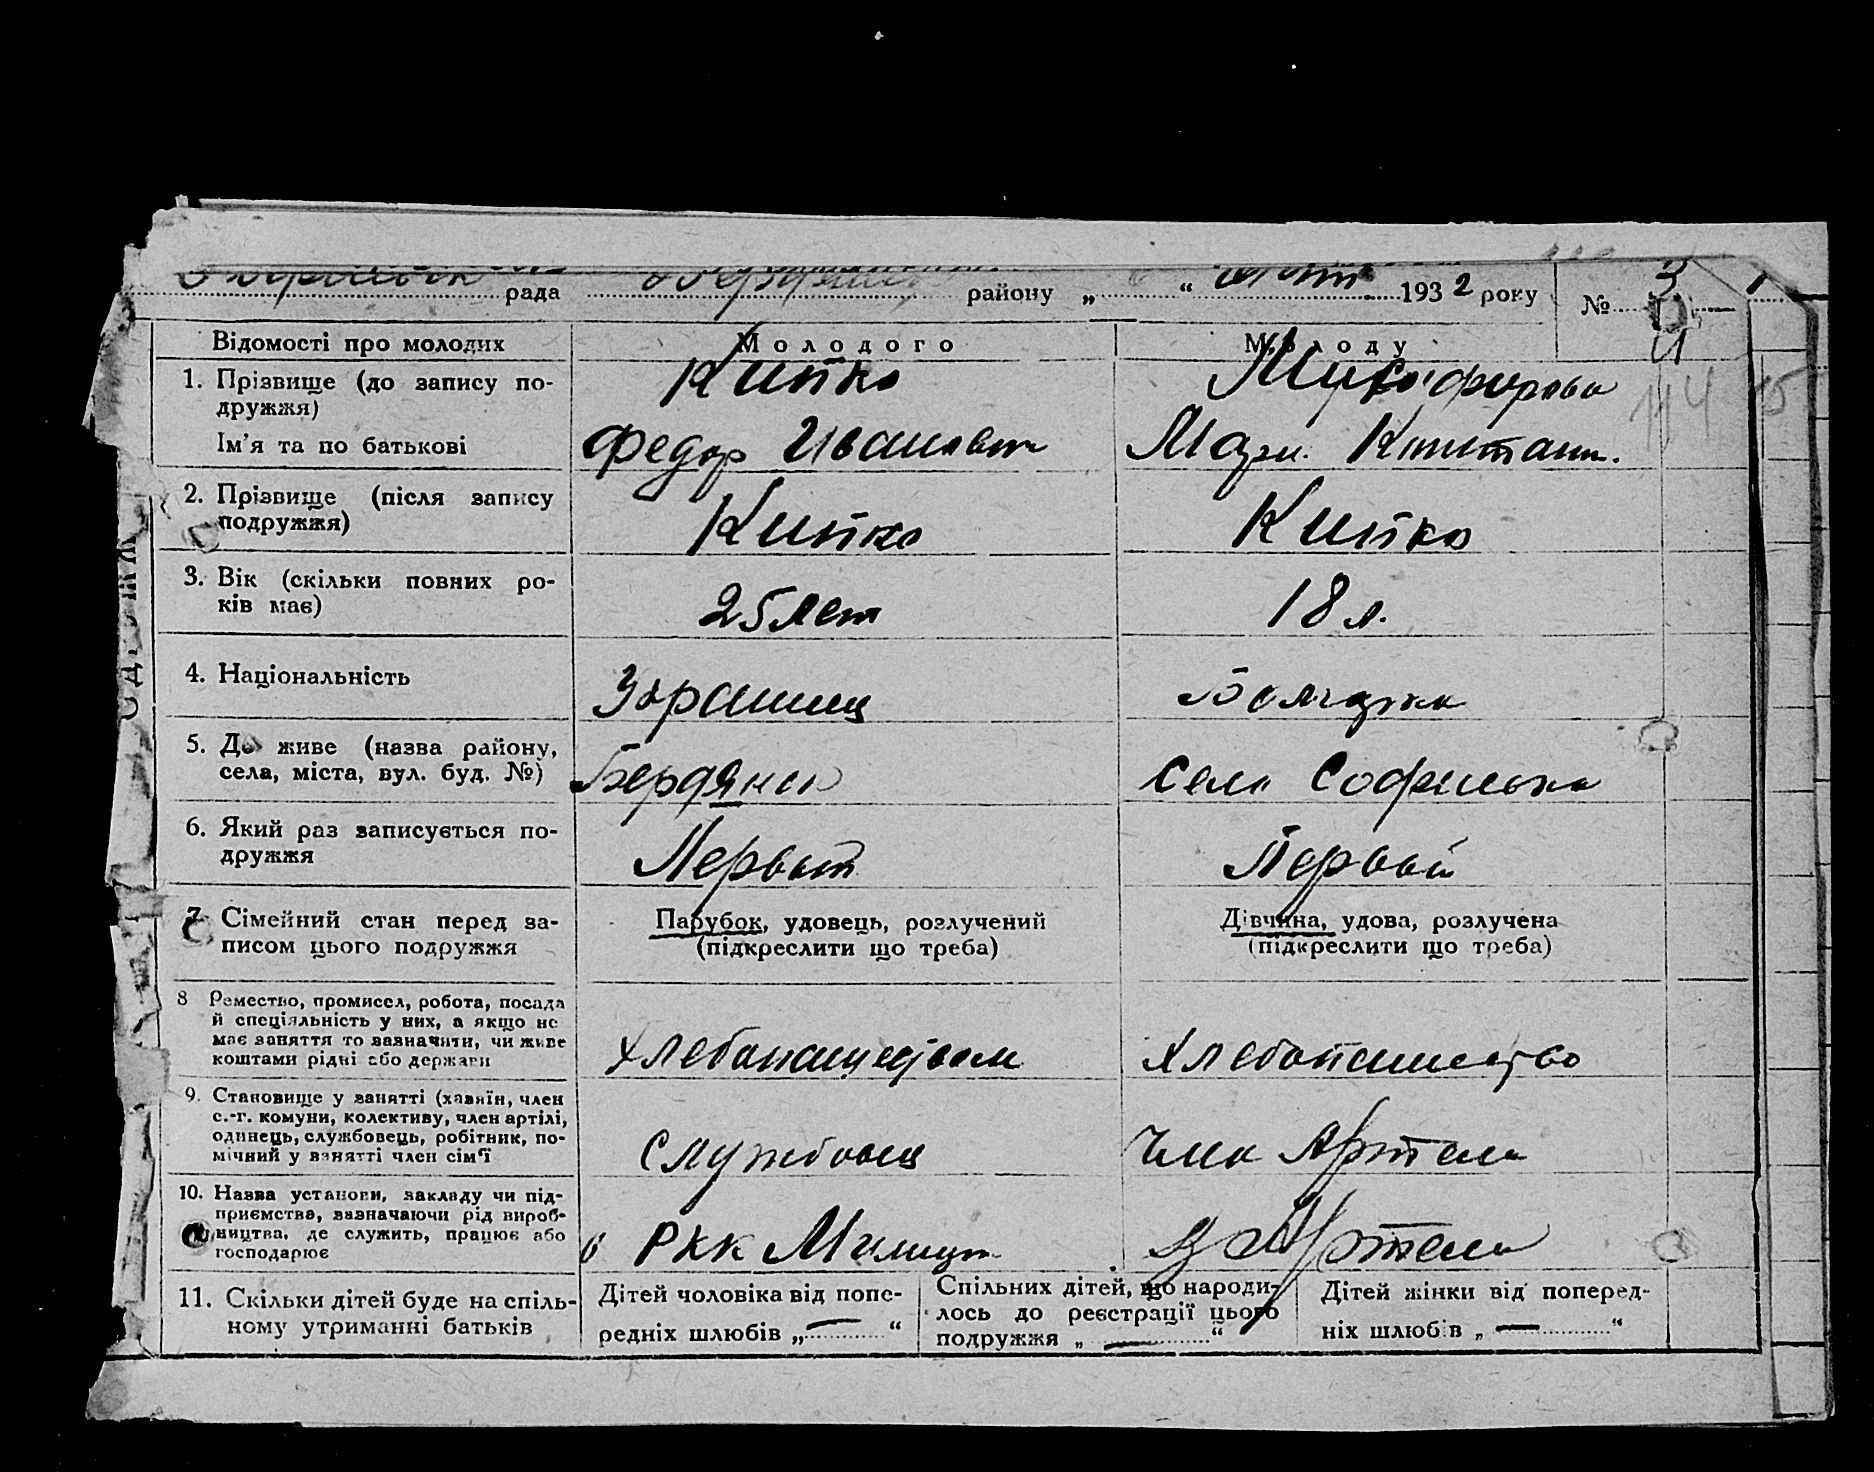 рада району „ “ 1932 року №
Відомості про молодих Молодого Молоду
1. Прізвище (до запису по-
дружжя)
Кипко
Ім'я та по батькові
Федор Иванович
2. Прізвище (після запису
подружжя)
Кипко Кипко
3. Вік (скільки повних ро-
ків має)
25 лет 18 л.
4. Національність
Украинец Болгарка
5. Де живе (назва району,
села, міста, вул. буд. №)
Бердянск село
6. Який раз записується по-
дружжя
Первый Первый
7 Сімейний стан перед за-
писом цього подружжя
Парубок, удовець, розлучений
(підкреслити що треба)
Дівчина, удова, розлучена
(підкреслити що треба)
8 Ремество, промисел, робота, посада
й спеціяльність у них, а якщо не
має заняття то зазначити, чи живе
коштами рідні або держави
Хлебопашеством Хлебопашество
9. Становище у занятті (хазяїн, член
с.-г. комуни, колективу, член артілі,
одинець, службовець, робітник, по-
мічний у занятті член сім'ї
Службовец член Артели
10. Назва установи, закладу чи під-
приємства, зазначаючи рід вироб-
ництва, де служить, працює або
господарює
в РКК Милиции Артели
11. Скільки дітей буде на спіль-
ному утриманні батьків
Дітей чоловіка від попе-
редніх шлюбів „—“
Спільних дітей, що народи-
лось до реєстрації цього
подружжя „—“
Дітей жінки від поперед-
ніх шлюбів „—“